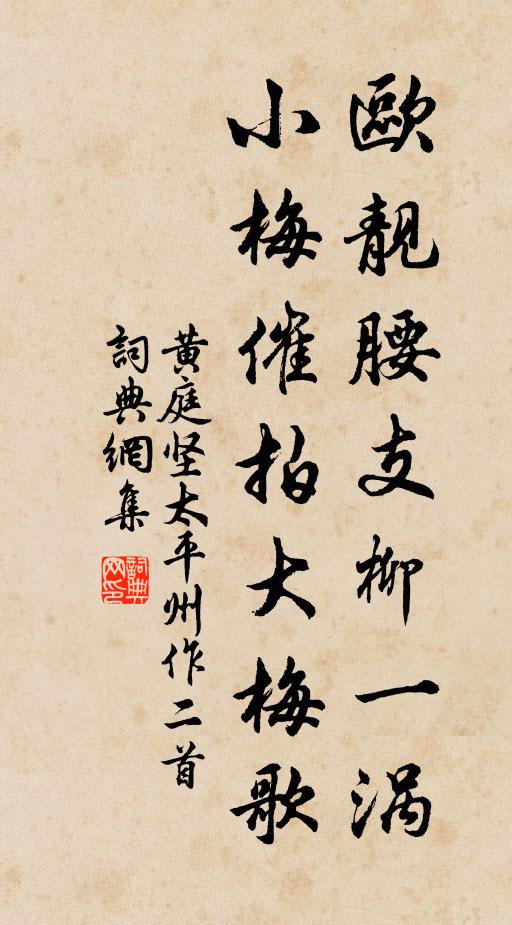 歐靚腰支柳一渦
小梅催拍大梅歌
黃庭坚太平州作二首
詞典網集
詞典网印